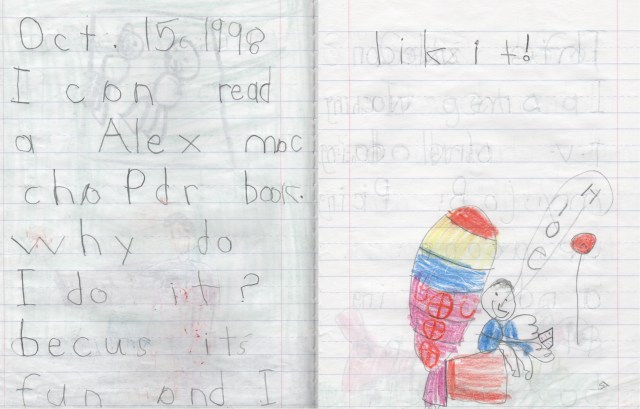 Oct. 15 1998
I can read
a Alex moc
choPdr book.
why do
I do it?
becus its
fun and I
likit!